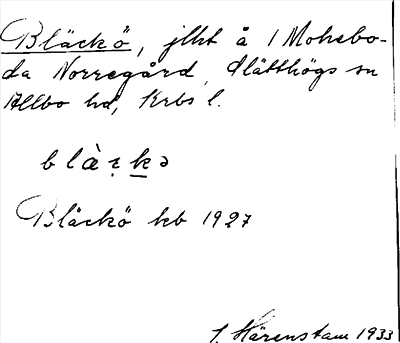 Bläckö, jlht å 1 Mohebo-
da Norregård, Slätthögs sn
Allbo hd, Krbs l.
Bläckö kb 1927
S. Härenstam 1933